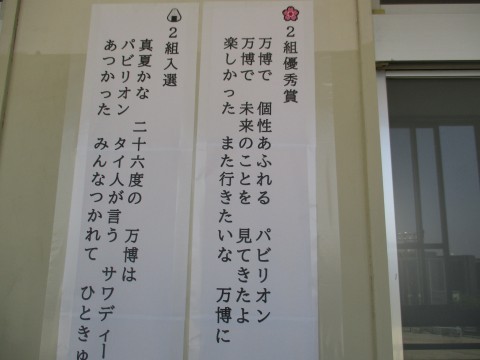 2組優秀賞
万博で 個性あふれる パビリオン
万博で 未来のことを 見てきたよ
楽しかった また行きたいな 万博に
2組入選
真夏かな 二十六度の 万博は
パビリオン タイ人が言う サワディー
あつかった みんなつかれて ひときゅ